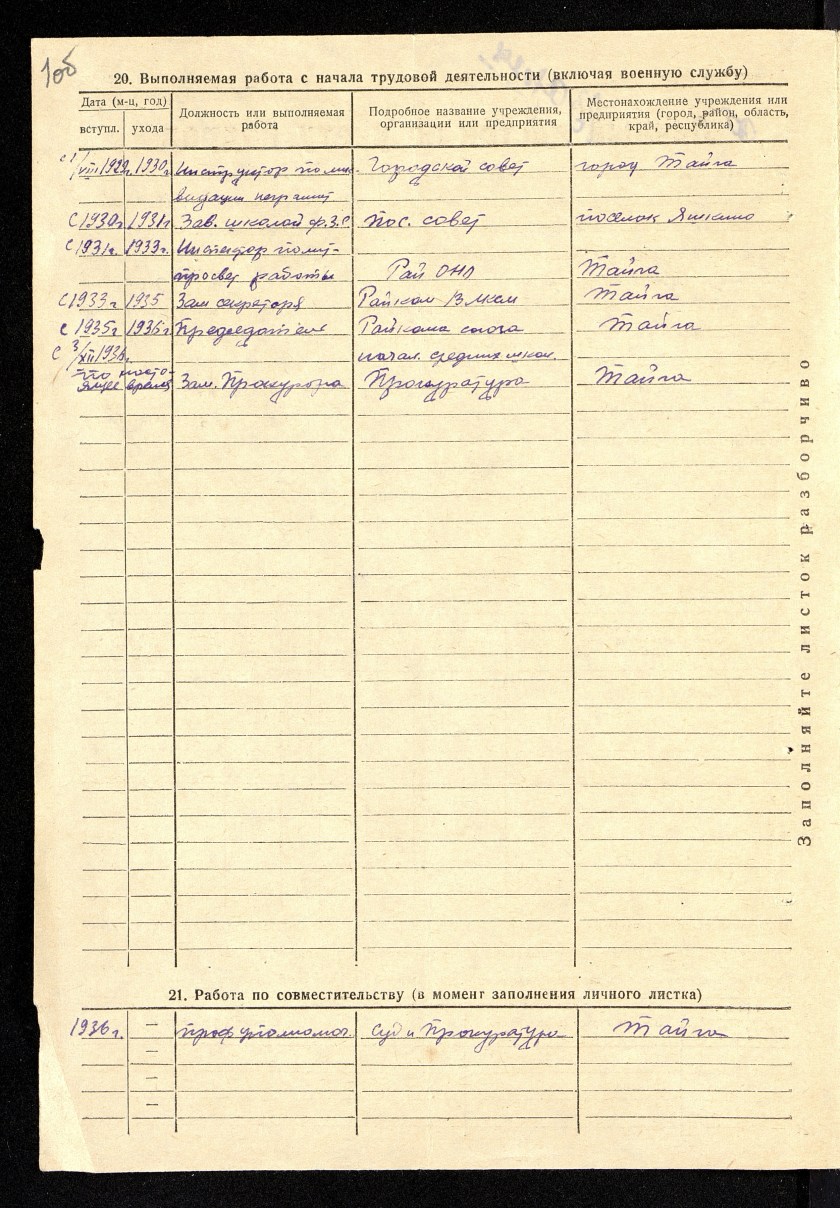 1об
20. Выполняемая работа с начала трудовой деятельности (включая военную службу)
Дата (м-ц, год) Должность или выполняемая работа Подробное название учреждения, организации или предприятия Местонахождение учреждения или предприятия (город, район, область, край, республика)
вступл. ухода
с 1/VIII 1929г. 1930г. Инструктор по лик- Городской совет город Тайга
видации неграмот
с 1930г 1931г Зав. школой ф.З.С. Пос. совет поселок Яшкино
с 1931г. 1933г. Инспектор полит-
просвет работы Рай ОНО Тайга
с 1933г 1935 Зам секретаря Райком ВЛКСМ Тайга
с 1935г 1936г Председатель Райкома союза Тайга
с 3/XII 1936г. начал. средних школ.
по насто-
ящее время Зам. Прокурора Прокуратура Тайга
Заполняйте листок разборчиво
21. Работа по совместительству (в момент заполнения личного листка)
1936г. — проф уполномоч. Суд и Прокуратура Тайга
—
—
—